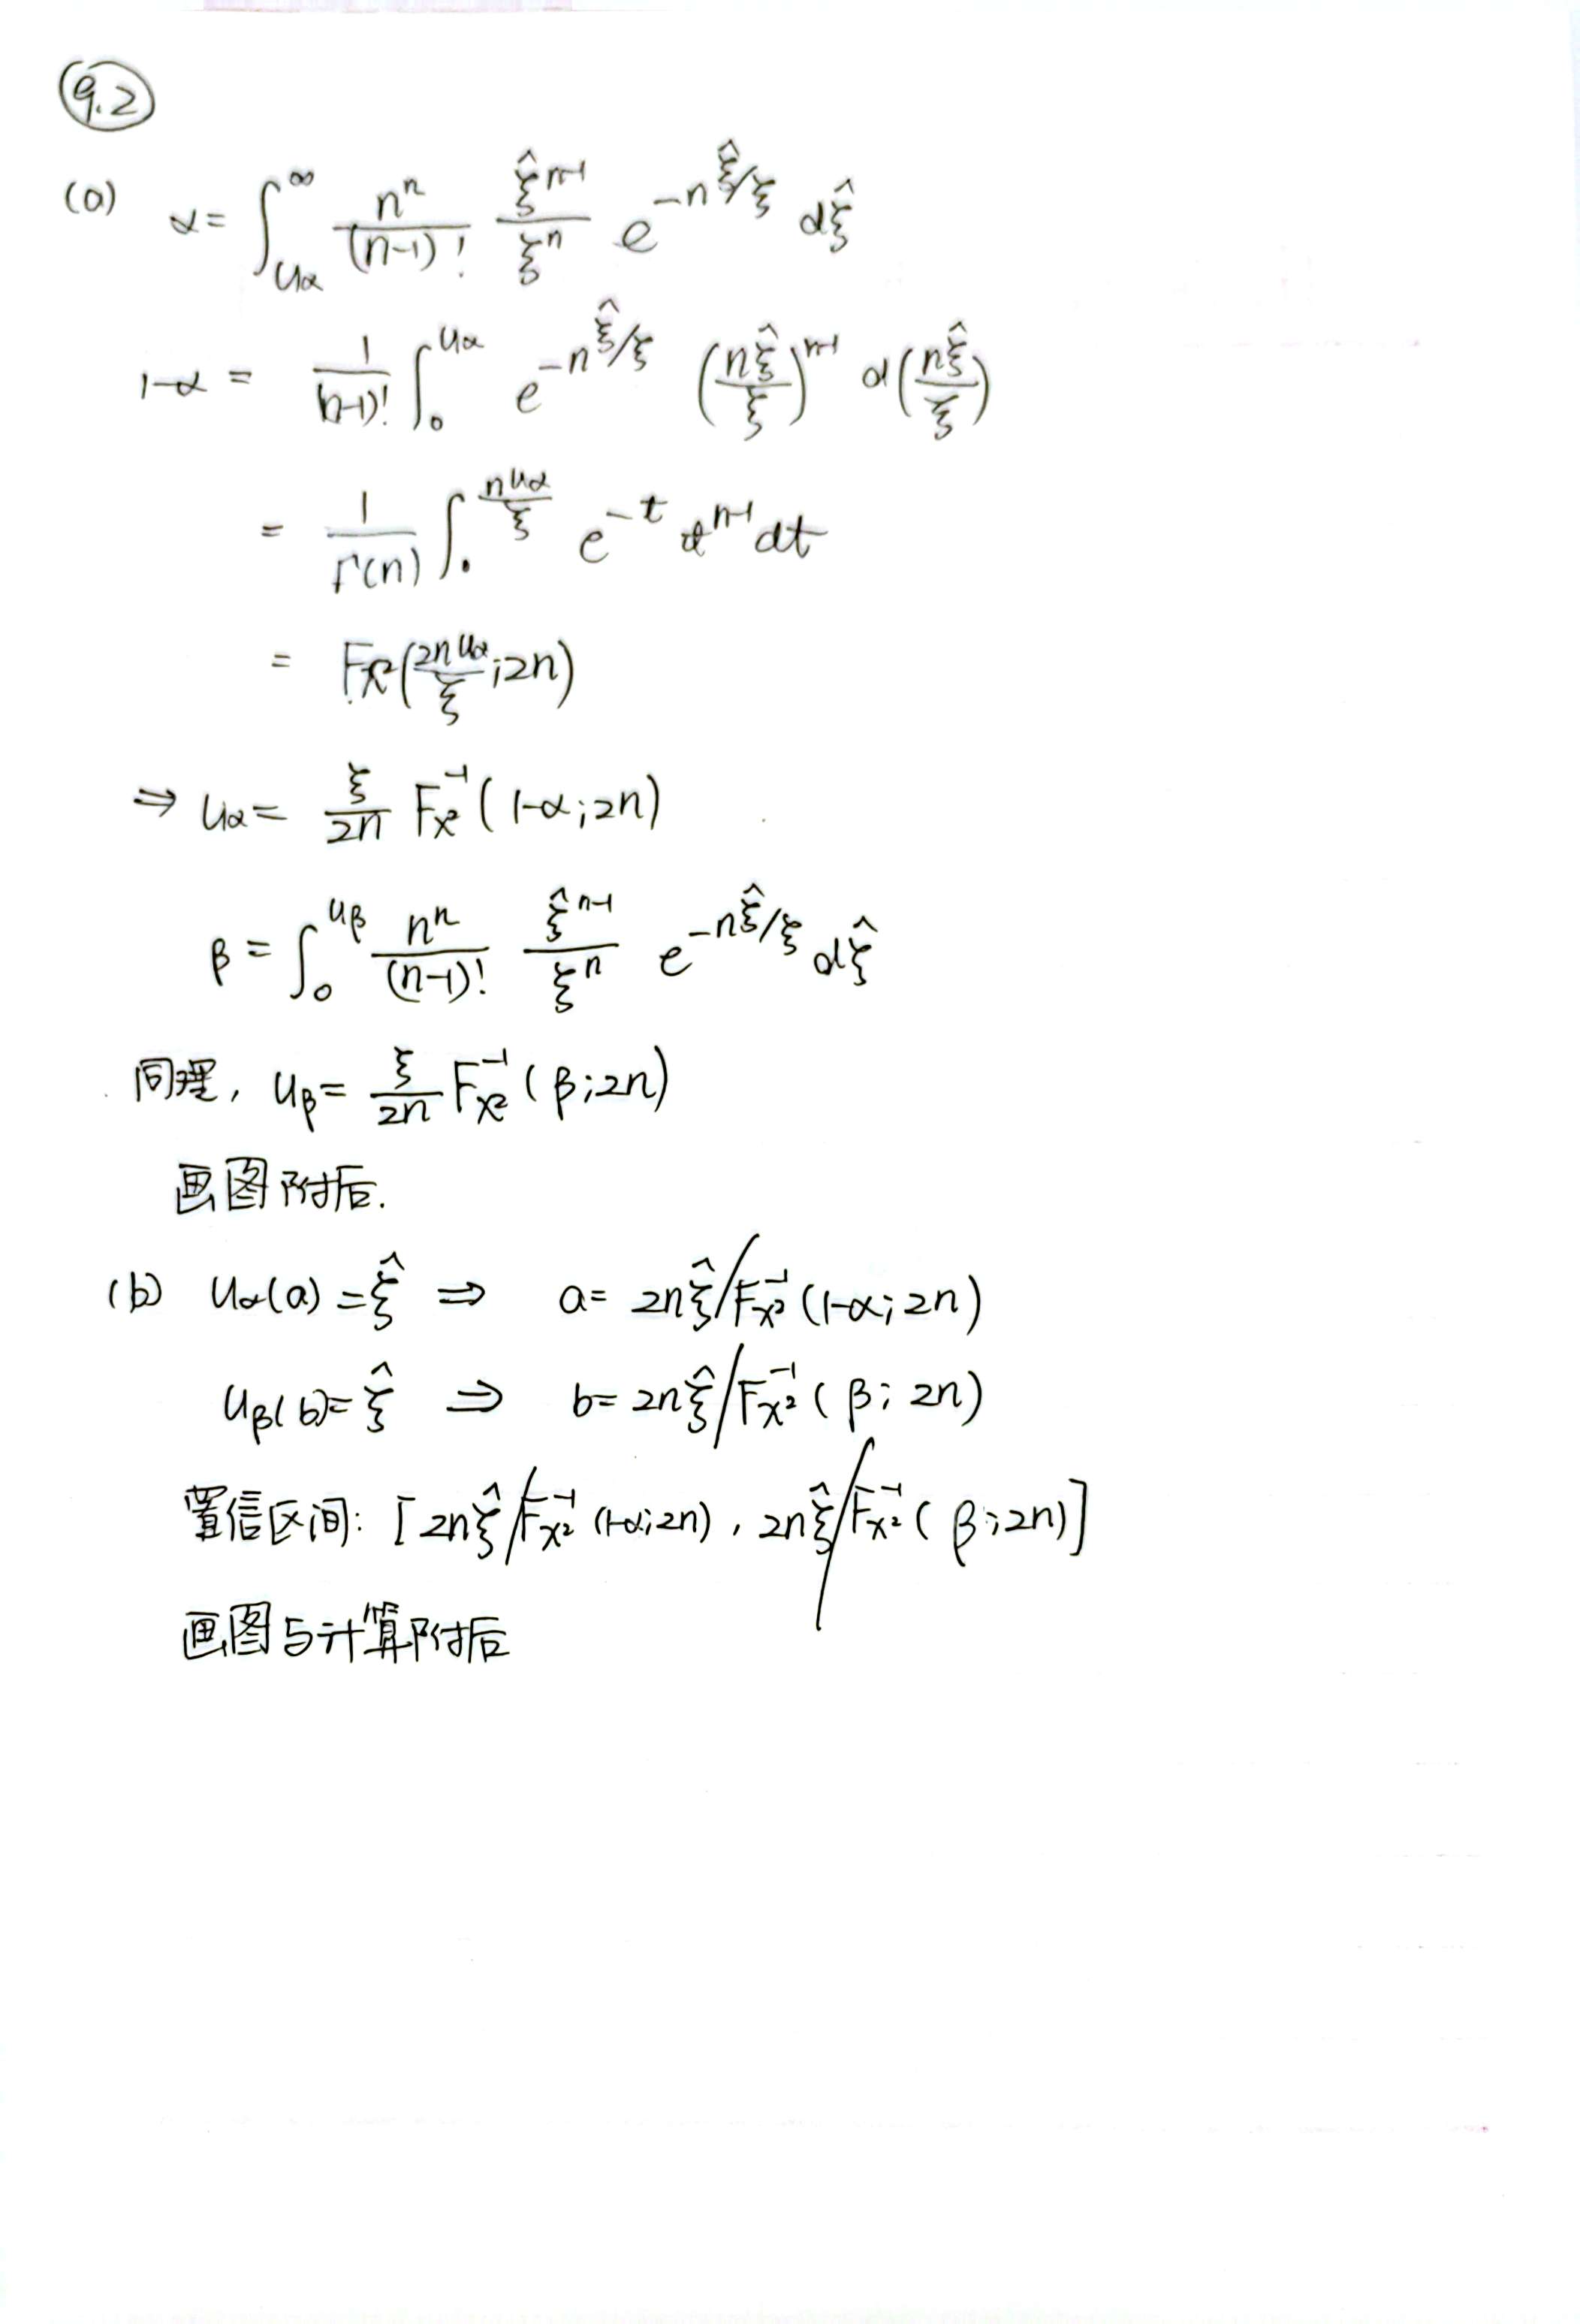 9.2
(a) α = ∫_{uα}^{∞} \frac{n^n}{(n-1)!} \frac{\hat{ξ}^{n-1}}{ξ^n} e^{-n\hat{ξ}/ξ} d\hat{ξ}
1-α = \frac{1}{(n-1)!} ∫_0^{uα} e^{-n\hat{ξ}/ξ} (\frac{n\hat{ξ}}{ξ})^{n-1} d(\frac{n\hat{ξ}}{ξ})
= \frac{1}{Γ(n)} ∫_0^{\frac{nuα}{ξ}} e^{-t} t^{n-1} dt
= F_{χ²}(\frac{2nuα}{ξ}; 2n)
⇒ uα = \frac{ξ}{2n} F_{χ²}^{-1}(1-α; 2n)
β = ∫_0^{uβ} \frac{n^n}{(n-1)!} \frac{\hat{ξ}^{n-1}}{ξ^n} e^{-n\hat{ξ}/ξ} d\hat{ξ}
同理, uβ = \frac{ξ}{2n} F_{χ²}^{-1}(β; 2n)
画图附后.
(b) uα(a) = \hat{ξ} ⇒ a = 2n\hat{ξ}/F_{χ²}^{-1}(1-α; 2n)
uβ(b) = \hat{ξ} ⇒ b = 2n\hat{ξ}/F_{χ²}^{-1}(β; 2n)
置信区间: [2n\hat{ξ}/F_{χ²}^{-1}(1-α; 2n), 2n\hat{ξ}/F_{χ²}^{-1}(β; 2n)]
画图与计算附后